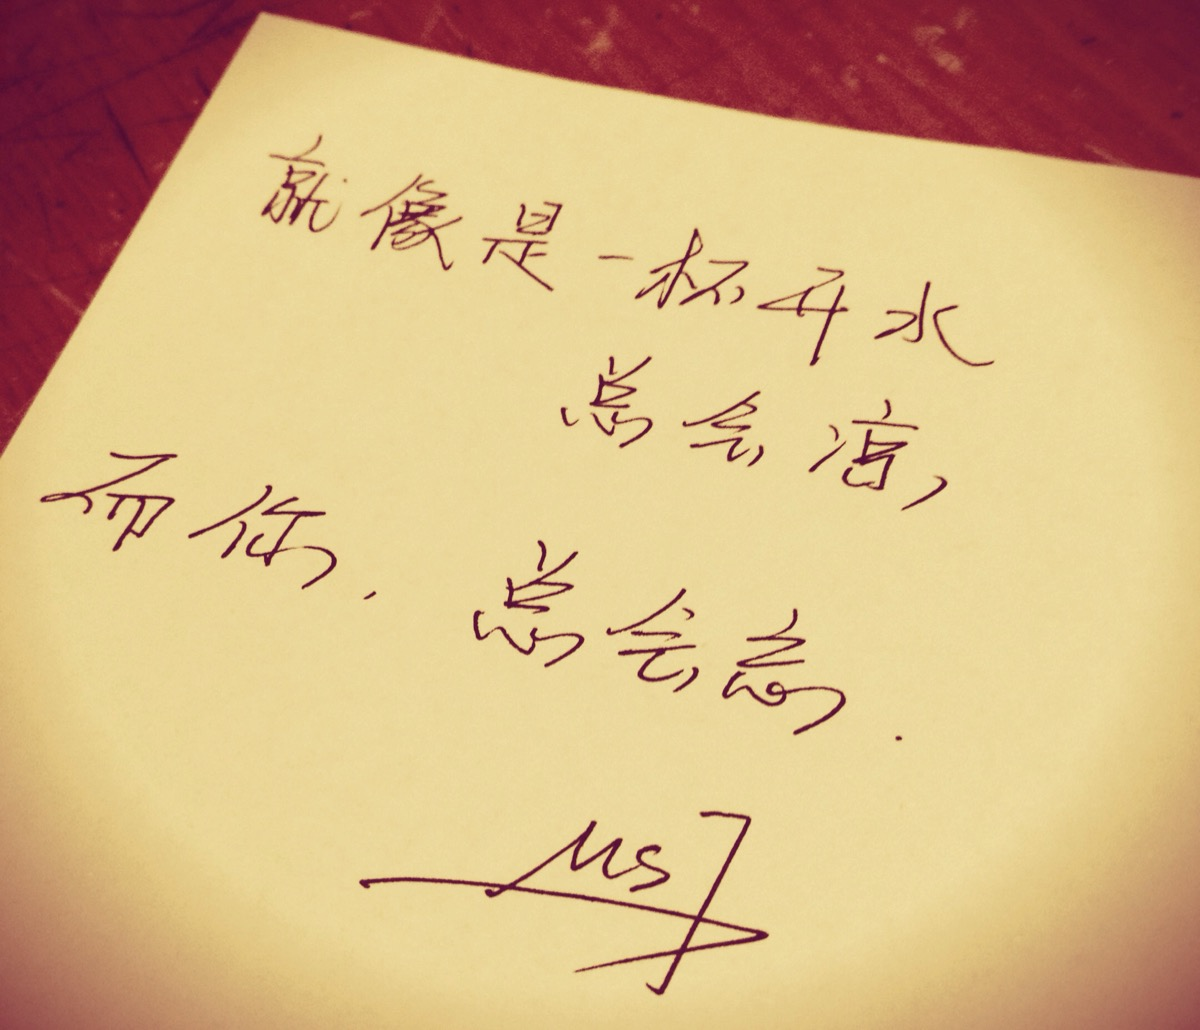 就像是一杯开水
总会凉,
而你, 总会忘.